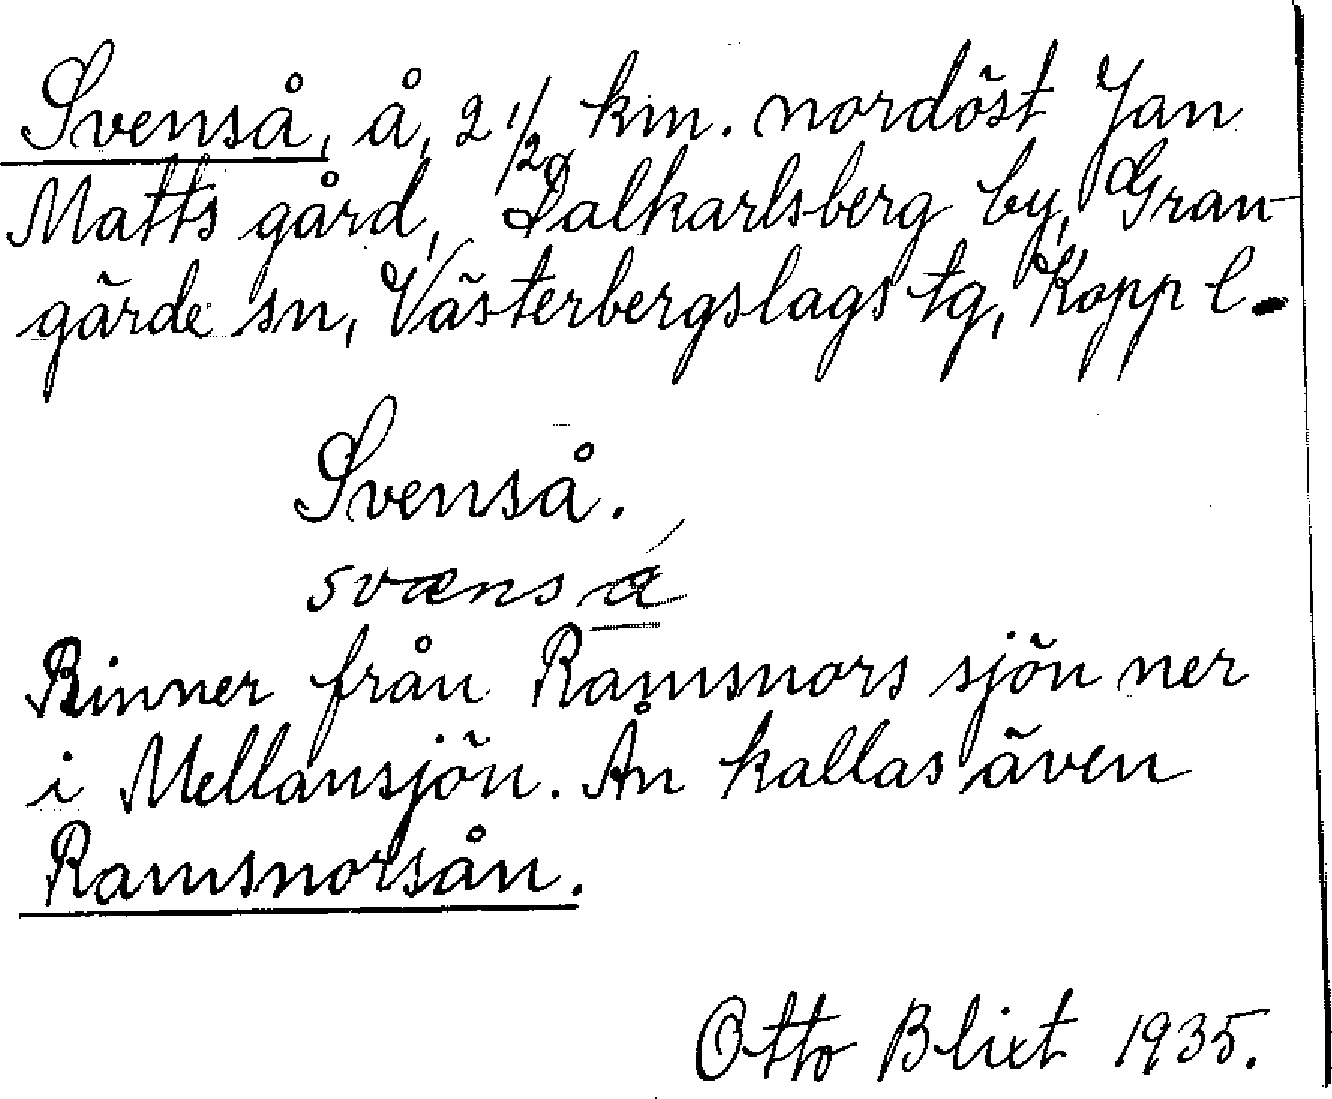 Svenså, å, 2 1/2 km. nordöst Jan
Matts gård, Dalkarlsberg by, Gran-
gärde sn, Västerbergslags tg, Kopp l.
Svenså.
svænsá
Rinner från Ramsnors sjön ner
i Mellansjön. Ån kallas även
Ramsnorsån.
Otto Blixt 1935.